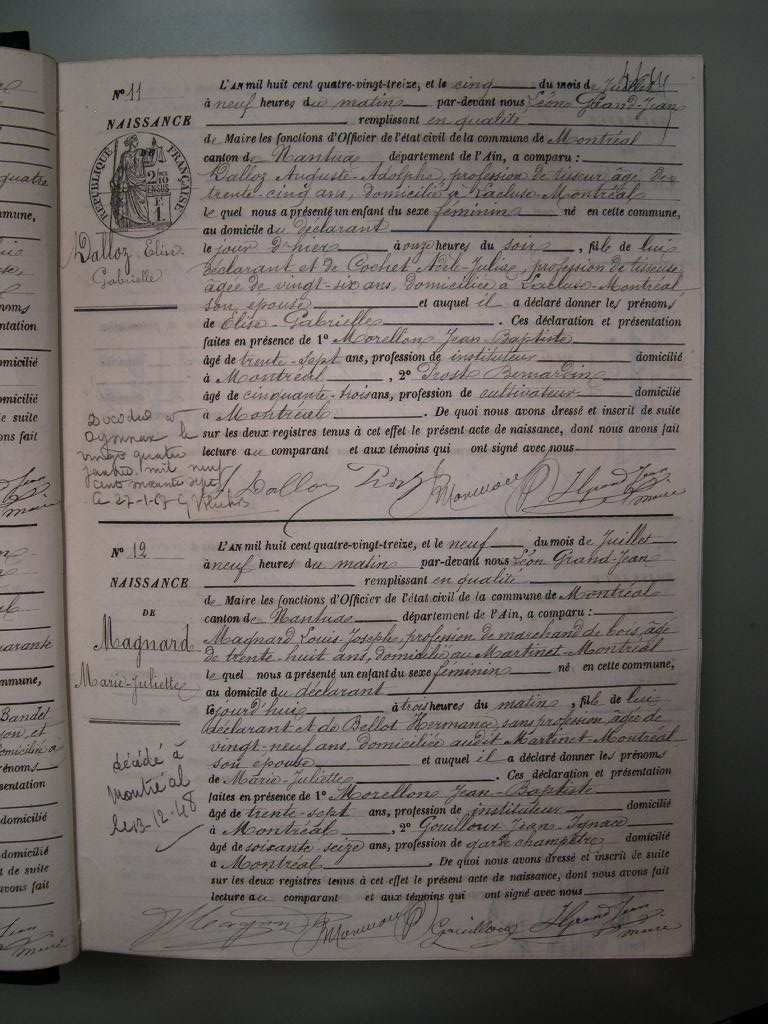 N° 11
NAISSANCE
RÉPUBLIQUE FRANÇAISE
Dalloz Elise
Gabrielle
L'AN mil huit cent quatre-vingt-treize, et le cinq du mois de Juillet
à neuf heures du matin par-devant nous Léon Grand-Jean
remplissant en qualité
de Maire les fonctions d'Officier de l'état civil de la commune de Montréal
canton de Nantua, département de l'Ain, a comparu :
Dalloz Auguste-Adolphe, profession de tisseur âgé de
trente-cinq ans, domicilié à Lacluse-Montréal
le quel nous a présenté un enfant du sexe féminin né en cette commune,
au domicile du déclarant
le jour d'hier à onze heures du soir, fille de lui
déclarant et de Cochet Adèle-Julie, profession de tisseuse
âgée de vingt-six ans, domiciliée à Lacluse-Montréal
son épouse et auquel il a déclaré donner les prénoms
de Elise-Gabrielle. Ces déclaration et présentation
faites en présence de 1° Morellon Jean-Baptiste
âgé de trente-sept ans, profession de instituteur domicilié
à Montréal, 2° Prost Bernardin
âgé de cinquante-trois ans, profession de cultivateur domicilié
à Montréal. De quoi nous avons dressé et inscrit de suite
sur les deux registres tenus à cet effet le présent acte de naissance, dont nous avons fait
lecture au comparant et aux témoins qui ont signé avec nous
Décédée à
Oyonnax le
vingt quatre
janvier mil neuf
cent soixante sept
le 27-1-67
Dalloz Prost Morellon LGrand Jean
maire
N° 12
NAISSANCE
DE
Magnard
Marie-Juliette
L'AN mil huit cent quatre-vingt-treize, et le neuf du mois de Juillet
à neuf heures du matin par-devant nous Léon Grand-Jean
remplissant en qualité
de Maire les fonctions d'Officier de l'état civil de la commune de Montréal
canton de Nantua département de l'Ain, a comparu :
Magnard Louis-Joseph, profession de marchand de bois, âgé
de trente-huit ans, domicilié au Martinet-Montréal
le quel nous a présenté un enfant du sexe féminin né en cette commune,
au domicile du déclarant
le jourd'hui à trois heures du matin, fille de lui
déclarant et de Bellot Hermance, sans profession âgée de
vingt-neuf ans, domiciliée audit Martinet-Montréal
son épouse et auquel il a déclaré donner les prénoms
de Marie-Juliette. Ces déclaration et présentation
faites en présence de 1° Morellon Jean-Baptiste
âgé de trente-sept ans, profession de instituteur domicilié
à Montréal, 2° Gouilloux Jean-Ignace
âgé de soixante-seize ans, profession de garde champêtre domicilié
à Montréal. De quoi nous avons dressé et inscrit de suite
sur les deux registres tenus à cet effet le présent acte de naissance, dont nous avons fait
lecture au comparant et aux témoins qui ont signé avec nous
décédé à
Montréal
le 13-12-48
Magnard Morellon Gouilloux LGrand Jean
maire